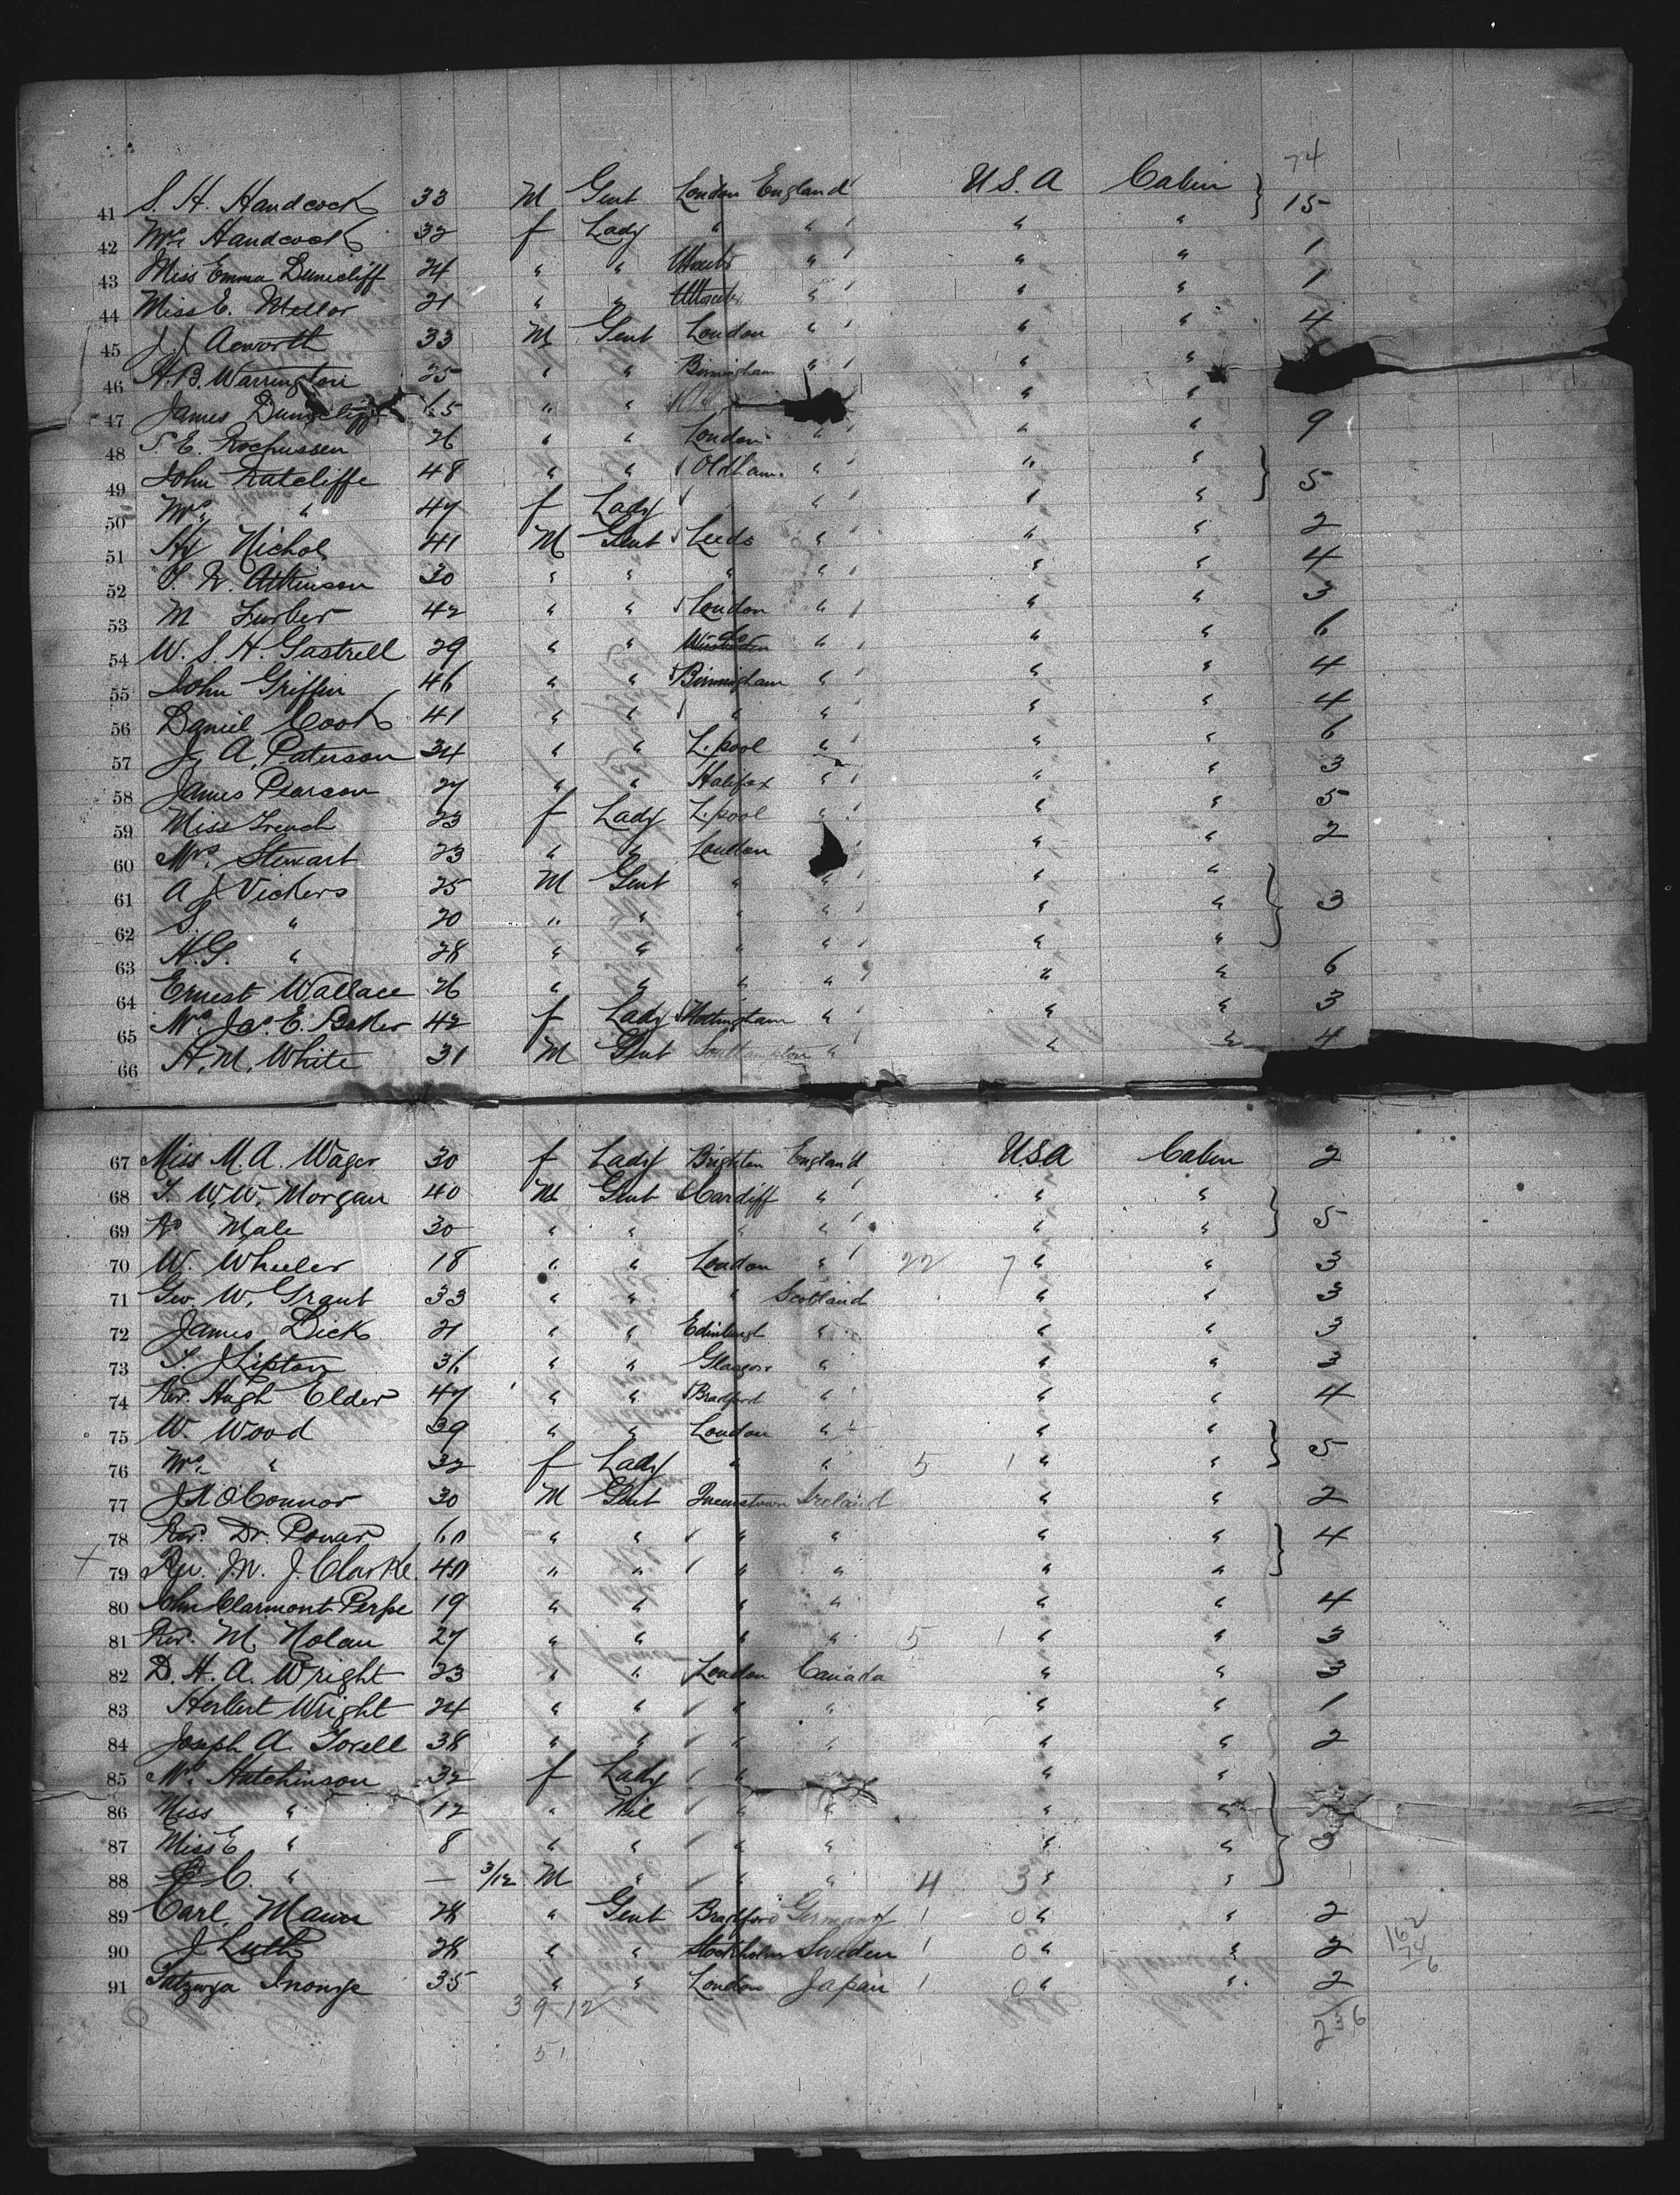 74
41 S. H. Handcock 33 M Gent London England U.S.A Cabin } 15
42 Mrs Handcock 32 f Lady " " " "
43 Miss Emma Dunicliff 24 " " " " " 1
44 Miss E. Mellor 21 " " Uttoxeter " " " 1
45 J. J. Acworth 33 M Gent London " " " 4
46 H. B. Warrington 25 " " Birmingham " " "
47 James " " " "
48 26 " " London " " " 9
49 John Ratcliffe 48 " " Oldham " " " } 5
50 Mrs " 47 f Lady " " "
51 Hy Nichol 41 M Gent Leeds " " " 2
52 Atkinson 30 " " " " " " 4
53 M Furber 42 " " London " " " 3
54 W. S. H. Gastrell 29 " " do " " " 6
55 John Griffin 46 " " Birmingham " " " 4
56 Daniel Cook 41 " " " " " " 4
57 J. A. Paterson 34 " " L.pool " " " 6
58 James Pearson 27 " " Halifax " " " 3
59 Miss French 23 f Lady L.pool " " " 5
60 Mrs. Stewart 23 " " London " " 2
61 A J Vickers 25 M Gent " " " "
62 S. " 20 " " " " " " } 3
63 H. G. " 28 " " " " " "
64 Ernest Wallace 26 " " " " " " 6
65 Mrs. Jas. E. Baker 42 f Lady Nottingham " " " 3
66 H. M. White 31 M Gent Southampton " " " 4
67 Miss M. A. Wager 30 f Lady Brighton England USA Cabin 2
68 T. W. W. Morgan 40 M Gent Cardiff " " " } 5
69 Male 30 " " " " " "
70 W. Wheeler 18 " " London " 22 7 " " 3
71 Geo. W. Grant 33 " " " Scotland " " 3
72 James Dick 21 " " Edinburgh " " " 3
73 T. J Lipton 36 " " Glasgow " " " 3
74 Rev. Hugh Elder 47 " " Bradford " " " 4
75 W. Wood 39 " " London " " " } 5
76 Mrs. " 32 f Lady " " 5 1 " "
77 O'Connor 30 M Gent Queenstown Ireland " " 2
78 Rev. Dr. Power 60 " " " " " " } 4
79 Rev. M. J. Clarke 40 " " " " " "
80 John Clarmont Perse 19 " " " " " " 4
81 Rev. M. Nolan 27 " " " " 5 1 " " 3
82 D. H. A. Wright 23 " " London Canada " " 3
83 Herbert Wright 24 " " " " " " 1
84 Joseph A. 38 " " " " " " 2
85 Mrs. Hutchinson 32 f Lady " " "
86 Miss " 12 " Nil " " " "
87 Miss E " 8 " " " " " " } 3
88 C. " — 3/12 M " " " 4 3 " "
89 Carl 28 " Gent Bradford Germany 1 0 " " 2
90 J 28 " " Stockholm Sweden 1 0 " " 2
91 35 " " London Japan 1 0 " " 2
39-12
51
162
74
236